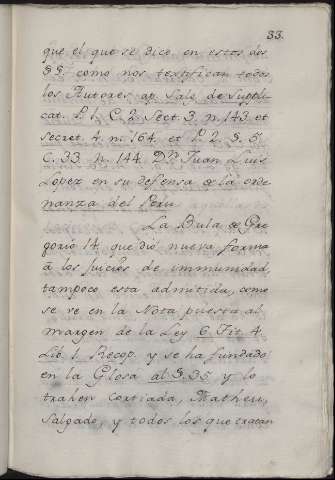 33.
que el que se dice en estos dos
§§. como nos testifican todos
los Autores ap. Salg. de suppli-
cat. P. 1. C. 2. Sect. 3. n. 143. et
secret. 4. n. 164. et P. 2. §. 5.
C. 33. n. 144. Dn. Juan Luis
López en su defensa de la orde-
nanza del Peru
La Bula de Gre-
gorio 14. que dió nueva forma
à los juicios de immunidad,
tampoco esta admitida, como
se ve en la Nota puesta al
margen de la Ley 6. Tit. 4.
Lib. 1. Recop. y se ha fundado
en la Glosa al §. 35. y lo
trahen Cortiada, Matheu,
Salgado, y todos los que tratan